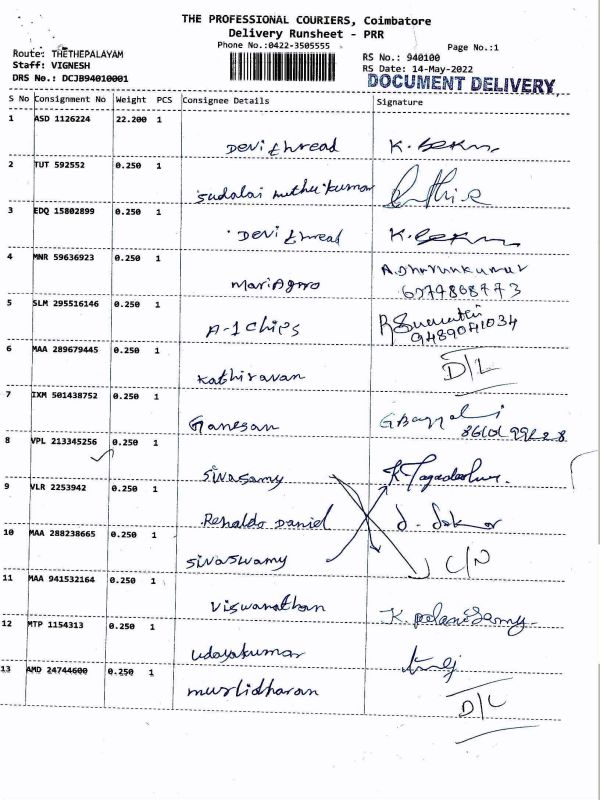 THE PROFESSIONAL COURIERS, Coimbatore
Delivery Runsheet - PRR
Phone No.:0422-3505555
Page No.:1
Route: THETHEPALAYAM
Staff: VIGNESH
DRS No.: DCJB94010001
RS No.: 940100
RS Date: 14-May-2022
DOCUMENT DELIVERY
S No Consignment No Weight PCS Consignee Details Signature
1 ASD 1126224 22.200 1
Devi thread
2 TUT 592552 0.250 1
Sudalai muthu kumar
3 EDQ 15802899 0.250 1
Devi thread
4 MNR 59636923 0.250 1
A.Dharunkumar
Mari Agro 6374868773
5 SLM 295516146 0.250 1
A-1 Chips 9489041034
6 MAA 289679445 0.250 1
Kathiravan D/L
7 IXM 501438752 0.250 1
Ganesan
8 VPL 213345256 0.250 1
Sivasamy
9 VLR 2253942 0.250 1
Renaldo Daniel
10 MAA 288238665 0.250 1
Sivaswamy C/N
11 MAA 941532164 0.250 1
Viswanathan K. palanisamy
12 MTP 1154313 0.250 1
Udayakumar
13 AMD 24744600 0.250 1
murlidharan D/L